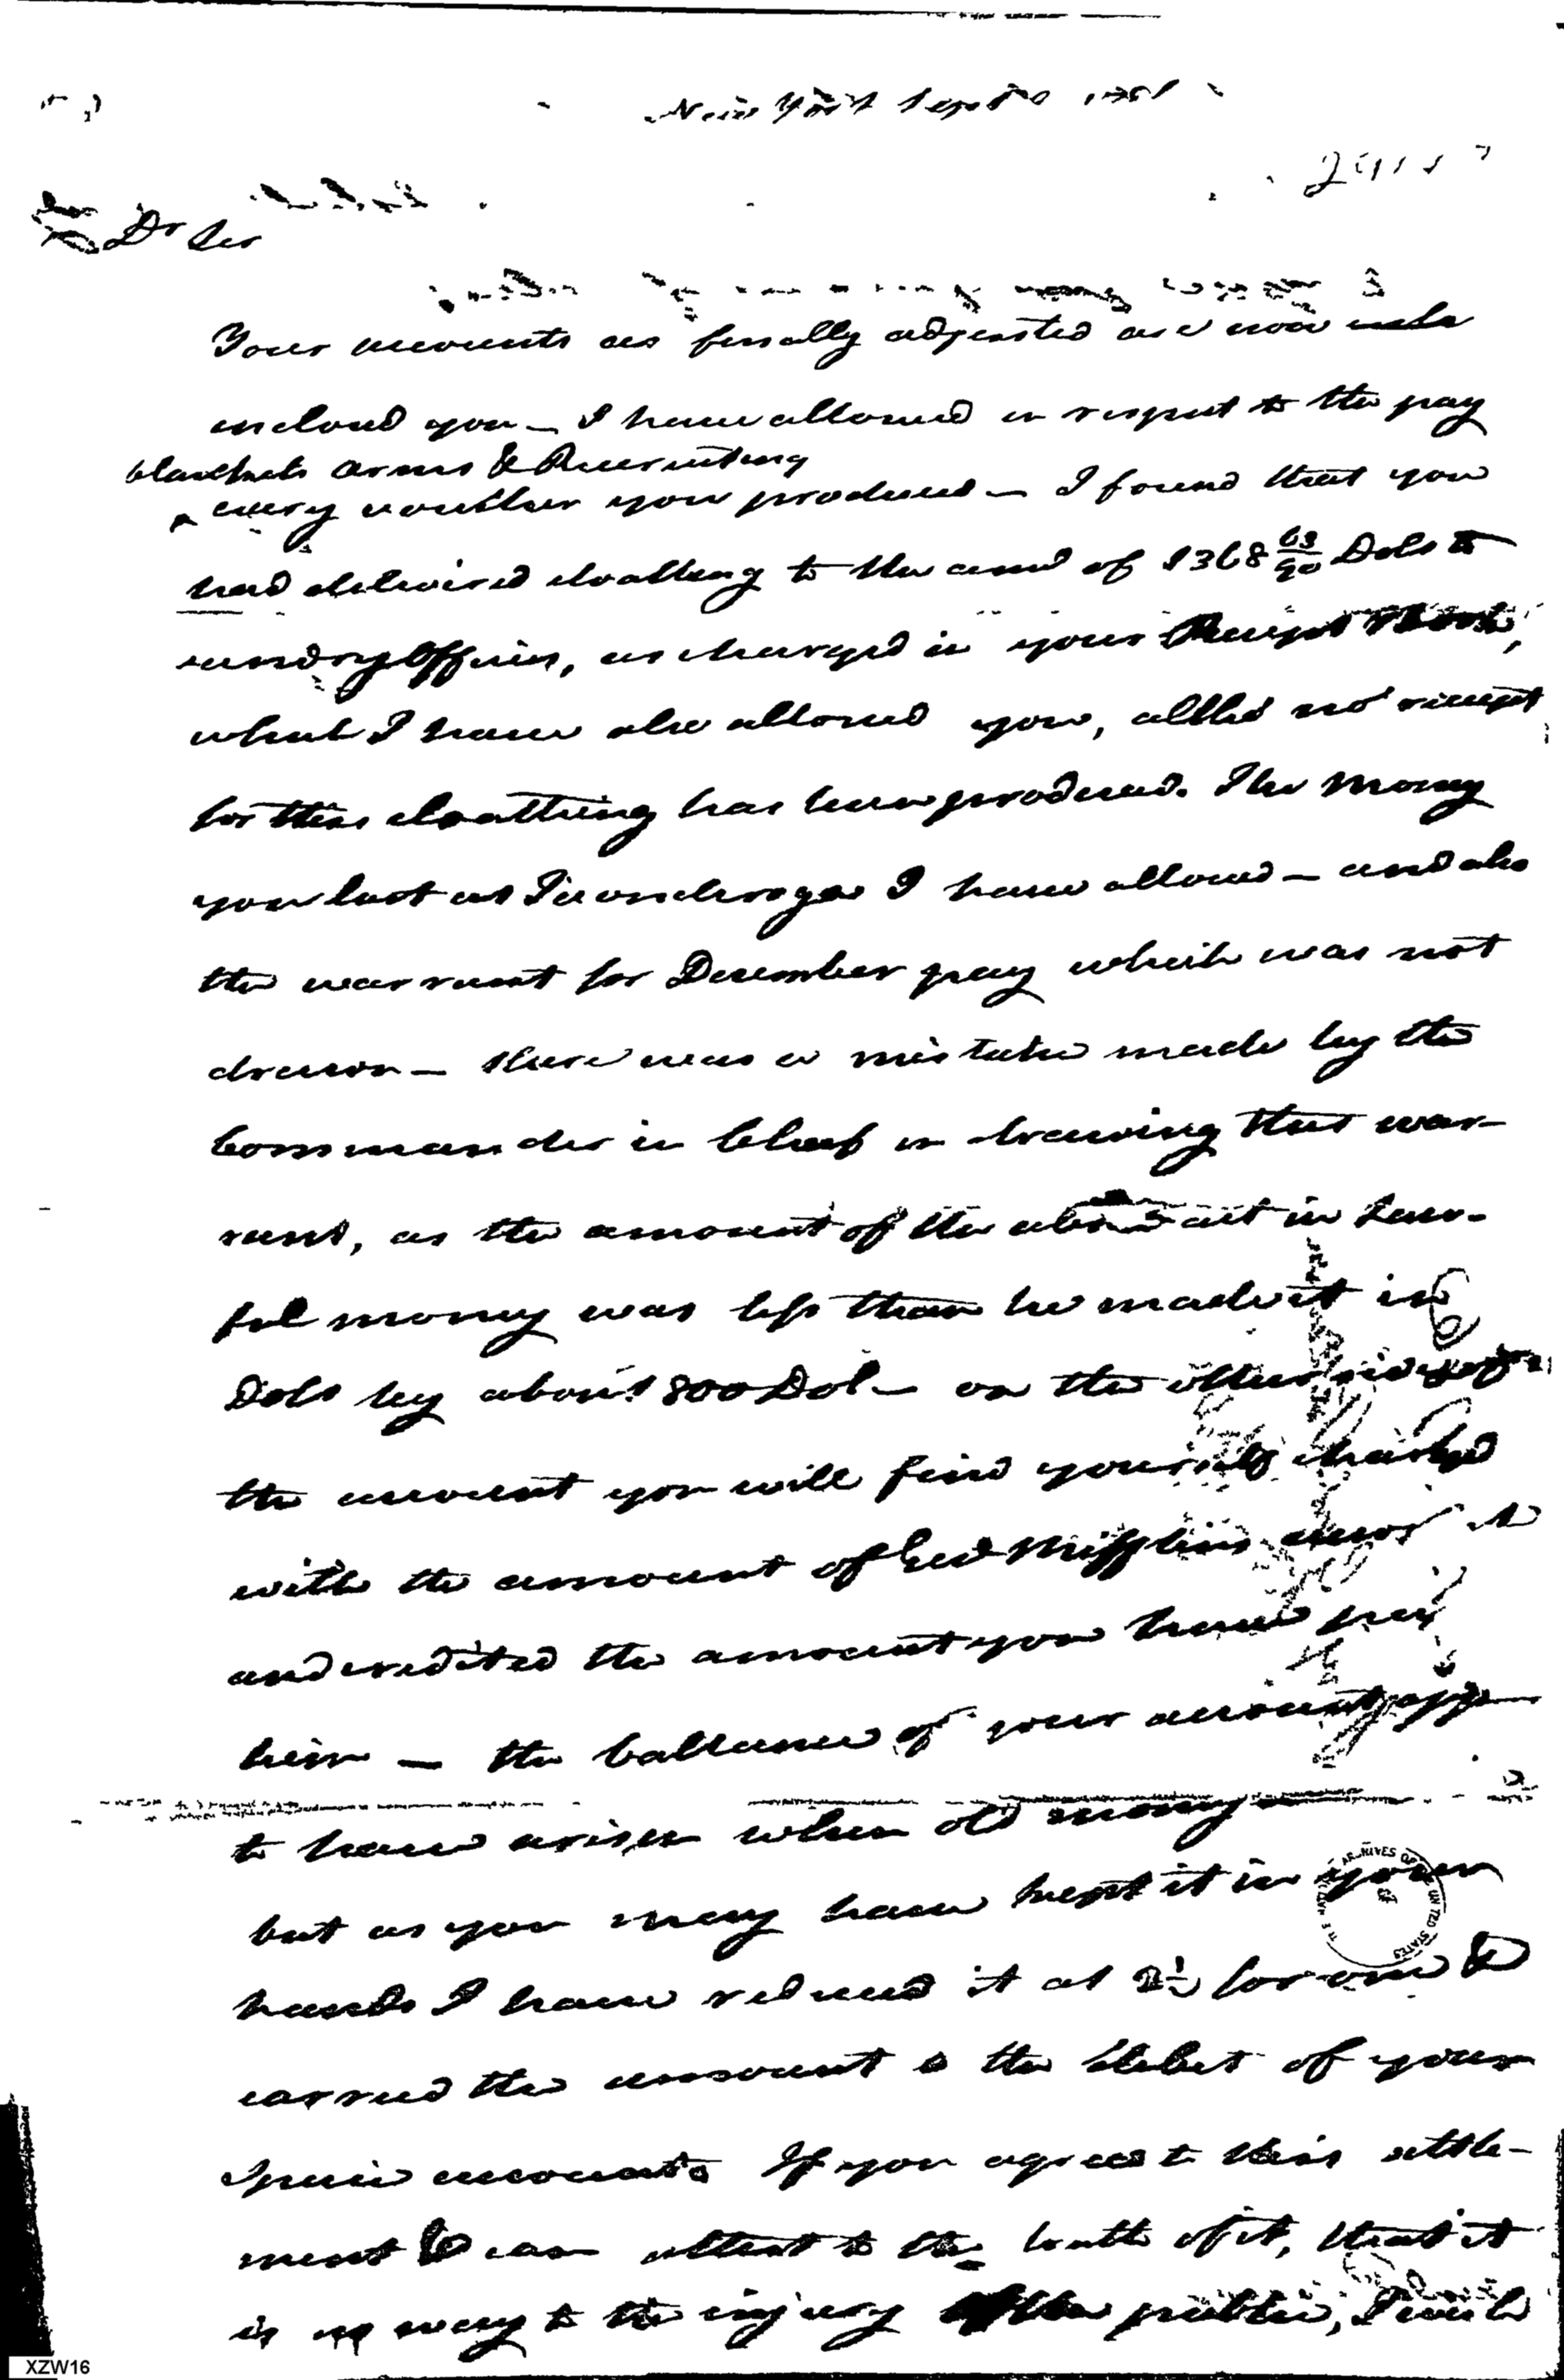 New York Sept
Dr Sir
Your accounts as finally adjusted are now
inclosed you — I have allowed in respect to the pay
blankets arms & Recruiting
every voucher you produced — I found that you
had delivered cloathing to the amt of 1368 63/90 Dols to
sundry Officers, as charged in your Receipt Book,
which I have also allowed you, altho no receipt
for this cloathing has been produced. The money
you lost at Ticonderoga I have allowed — and also
the warrant for December pay which was not
drawn — there was a mistake made by the
Commander in Chief in drawing this war-
rant, as the amount of the abstract in Law-
ful money was less than he made it in
Dols by about 800 Dol — on the other side of
the account you will find yourself charged
with the amount of Mifflins
and credited the amount you have paid
him — the ballance of your account
to have arisen when old money
but as you may have kept it in your
hands I have reduced it at for one &
carried the amount to the debit of your
Specie accounts If you agree to this settle-
ment & can attest to the truth of it, that it
is no way to the injury of the public, I will
ARCHIVES OF UNITED STATES
XZW16